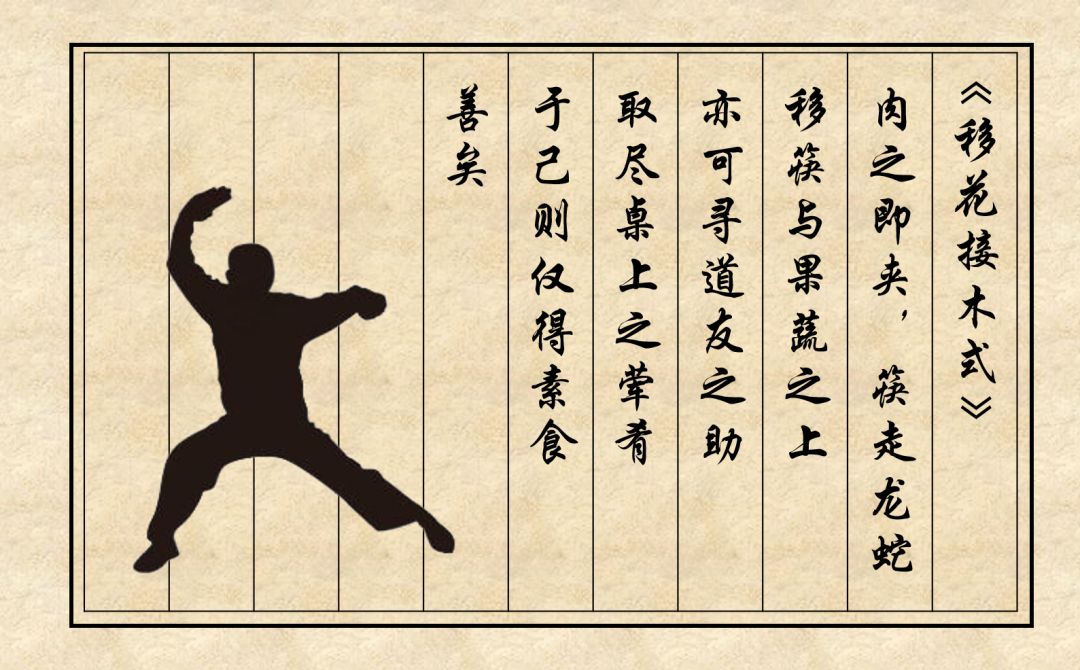 《移花接木式》
肉之即夹，筷走龙蛇
移筷与果蔬之上
亦可寻道友之助
取尽桌上之荤肴
于己则仅得素食
善矣